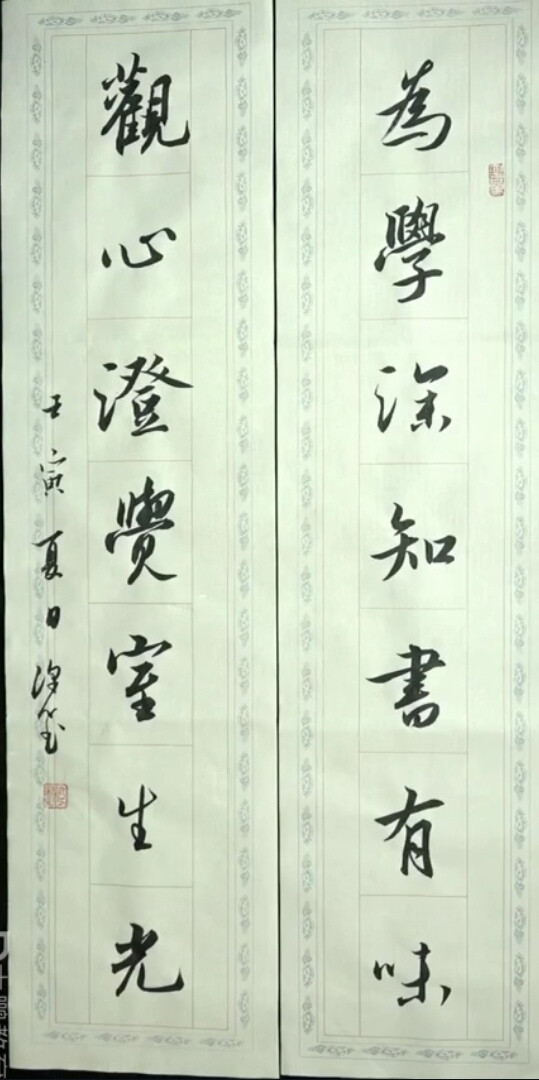 為學深知書有味
觀心澄覺室生光
壬寅夏日